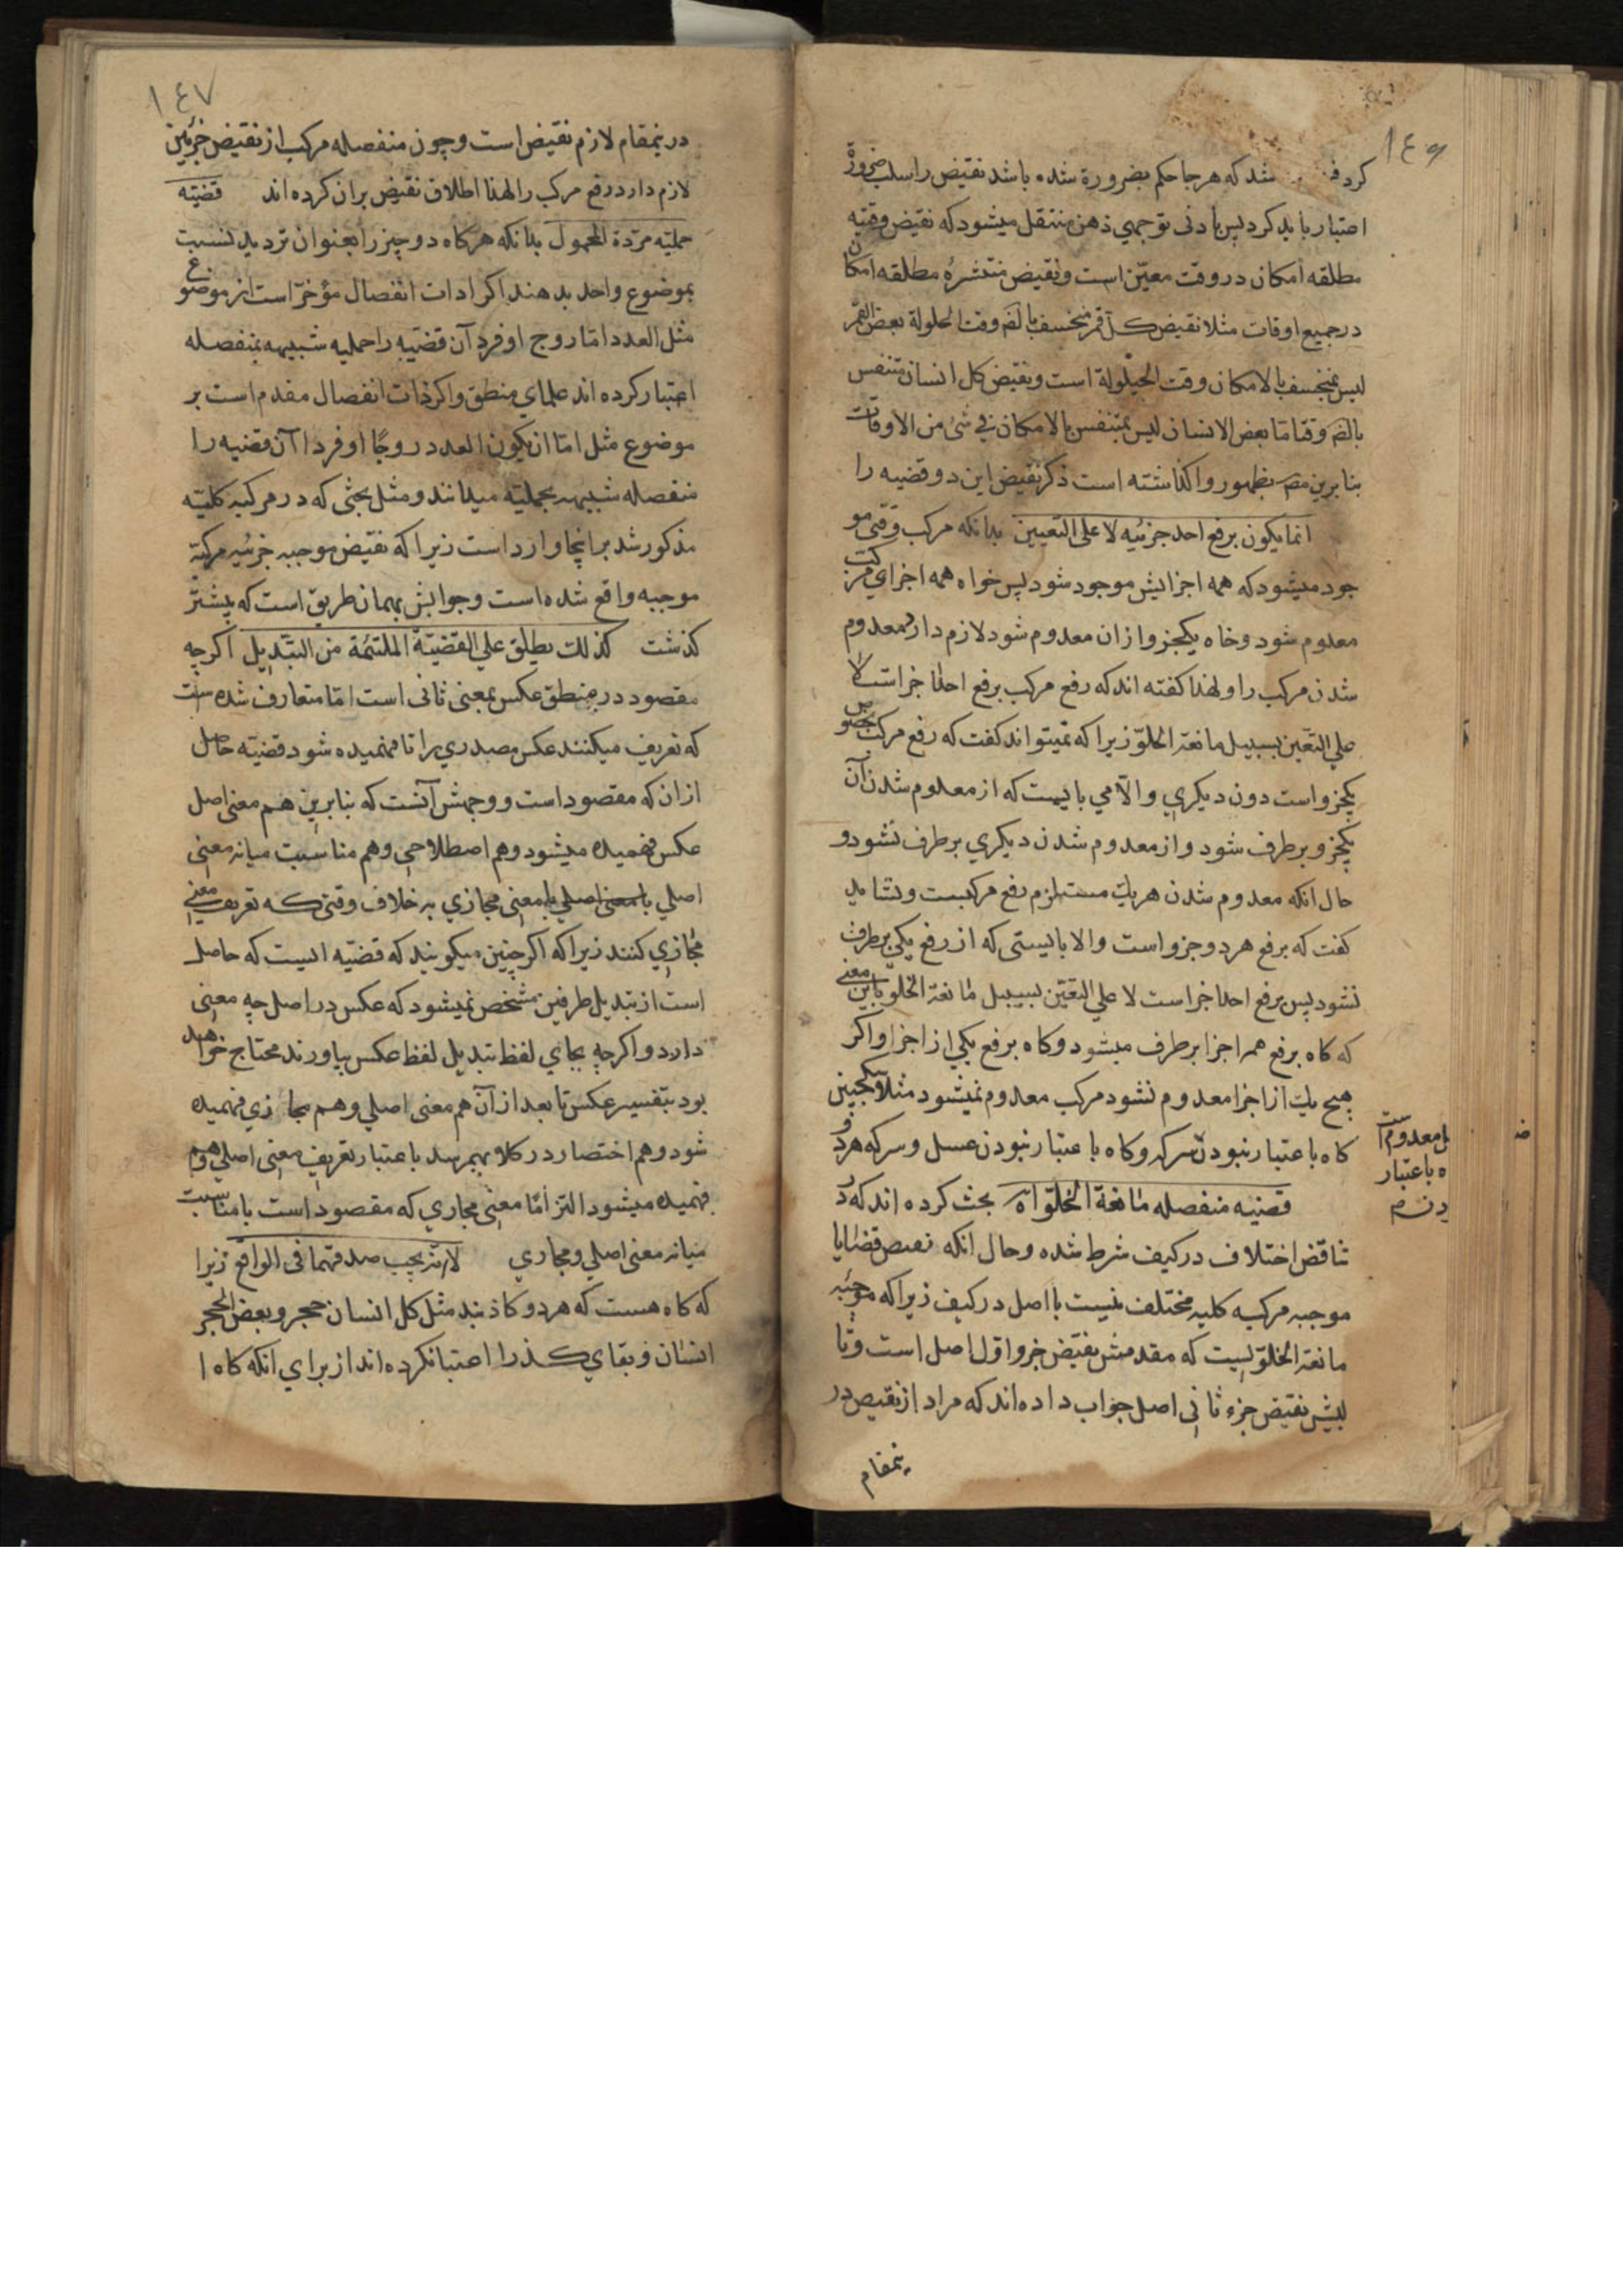 ١٤٦
كرد شد كه هر جا حكم بضرورة شده باشد نقيض را سلب ضرورة
اعتبار بايد كرد پس بادنى توجهي ذهن منتقل ميشود كه نقيض وقتيه
مطلقه امكان در وقت معيّن است و نقيض منتشرۀ مطلقه امكان
در جميع اوقات مثلا نقيض كل قمر منخسف بالضر وقت الحلولة بعض القمر
ليس بمنخسف بالامكان وقت الحيلولة است و نقيض كل انسان متنفس
بالضر وقتا ما بعض الانسان ليس بمتنفس بالامكان في شئ من الاوقات
بنابرين مصر بظهور واكذاشته است ذكر نقيض اين دو قضيه را
انما يكون برفع احد جزئيه لا على التعيين بدانكه مركب وقتى مو
جود ميشود كه همه اجزايش موجود شود پس خواه همه اجزاي مركب
معدوم شود و خاه يكجزو ازان معدوم شود لازم دارد معدوم
شدن مركب را و لهذا كفته اند كه رفع مركب برفع احد اجزاست لا
علي التعين بسبيل مانعة الخلوّ زيرا كه نميتواند كفت كه رفع مركب بخصوص
يكجزو است دون ديكري والّا مي بايست كه از معدوم شدن آن
يكجزو برطرف شود و از معدوم شدن ديكري برطرف نشود و
حال انكه معدوم شدن هر يك مستلزم رفع مركبست و نشايد
كفت كه برفع هر دو جزو است والا بايستى كه از رفع يكي برطرف
نشود پس برفع احد اجزا است لا علي التعين بسبيل مانعة الخلو باين معني
كه كاه برفع همه اجزا برطرف ميشود و كاه برفع يكي از اجزا و اكر
هيچ يك از اجزا معدوم نشود مركب معدوم نميشود مثلا سكنجبين
كاه باعتبار نبودن سركه و كاه باعتبار نبودن عسل و سركه هر دو
قضيه منفصله مانعة الخلوّ اه بحث كرده اند كه در
تناقض اختلاف در كيف شرط شده و حال انكه نقيض قضايا
موجبه مركبه كليه مختلف نيست با اصل در كيف زيرا كه موجبه
مانعة الخلوّ ايست كه مقدمش نقيض جزو اول اصل است و تا
ليش نقيض جزء ثانى اصل جواب داده اند كه مراد از نقيض در
ينمقام
معدوم است
ه باعتبار
١٤٧
در ينمقام لازم نقيض است و چون منفصله مركب از نقيض جزئين
لازم دارد رفع مركب را لهذا اطلاق نقيض بران كرده اند قضيّه
حمليّه مردّدة المحمول بدانكه هركاه دو چيز را بعنوان ترديد نسبت
بموضوع واحد بدهند اكر ادات انفصال مؤخرّ است از موضوع
مثل العدد امّا زوج او فرد آن قضيّه را حمليه شبيهه بمنفصله
اعتبار كرده اند علماي منطق و اكر ذات انفصال مقدم است بر
موضوع مثل امّا ان يكون العدد زوجًا او فردا آن قضيه را
منفصله شبيهه بحمليّه ميدانند و مثل بحثى كه در مركبه كليّه
مذكور شد برانجا وارد است زيرا كه نقيض موجبه جزئيه مركبّة
موجبه واقع شده است و جوابش بهمان طريق است كه پيشتر
كذشت كذلك يطلق علي القضيّة الملتئمة من التبّديل اكرچه
مقصود در منطق عكس بمعنى ثانى است امّا متعارف شده است
كه تعريف ميكنند عكس مصدري را تا فهميده شود قضيّه حاصل
ازان كه مقصود است و وجهش آنست كه بنابرين هم معنى اصل
عكس فهميده ميشود و هم اصطلاحى و هم مناسبت ميانه معنى
اصلي با معنى مجازي بر خلاف وقتى كه تعريف معني
مجازي كنند زيرا كه اكر چنين ميكويند كه قضيّه ايست كه حاصل
است از تبديل طرفين مشخص نميشود كه عكس در اصل چه معنى
دارد و اكرچه بجاي لفظ تبديل لفظ عكس بياورند محتاج خواهند
بود بتفسير عكس تا بعد از آن هم معنى اصلي و هم مجازي فهميده
شود و هم اختصار در كلام بهمرسد باعتبار تعريف معنى اصلي و هم
فهميده ميشود التزامًا معنى مجازي كه مقصود است با مناسبت
ميانه معنى اصلي و مجازي لانّه يجب صدقهما فى الواقع زيرا
كه كاه هست كه هر دو كاذبند مثل كل انسان حجر و بعض الحجر
انسان و بقاي كذب را اعتبار نكرده اند از براي انكه كاه ا